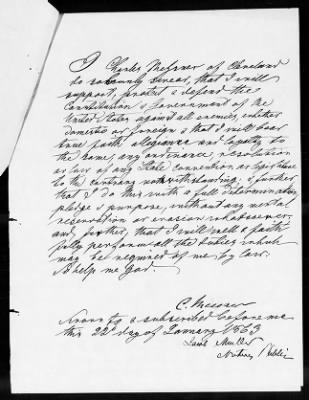 I Charles Messner of Cleveland
do solemnly swear, that I will
support, protect & defend the
Constitution & Government of the
United States against all enemies, whether
domestic or foreign & that I will bear
true faith allegiance and loyalty to
the same, any ordinance, resolution
or law of any State Convention or legislature
to the contrary notwithstanding. & further
that I do this with a full determination
pledge & purpose, without any mental
reservation or evasion whatsoever.
and, further, that I will well & faith
fully perform all the duties which
may be required of me by law.
So help me God.
C. Messner
Sworn to & subscribed before me
this 22d day of January 1863
Notary Public